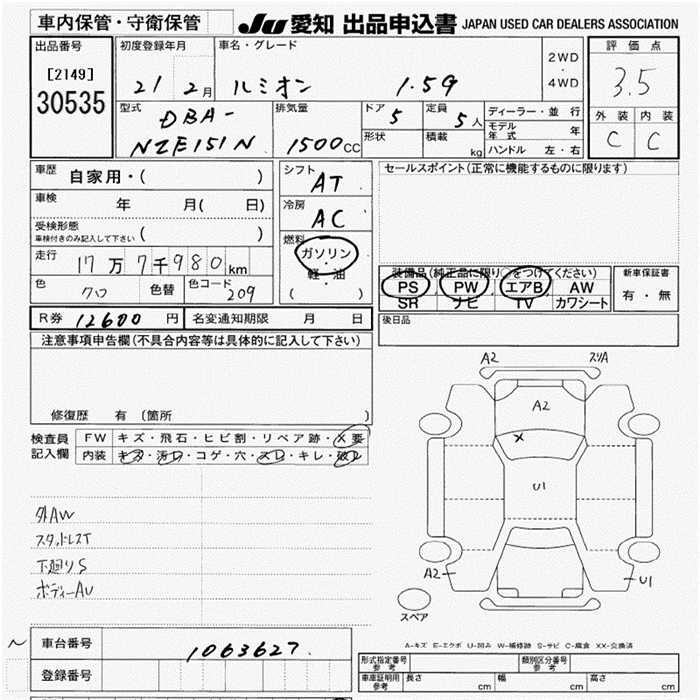 車内保管・守衛保管 JU 愛知 出品申込書 JAPAN USED CAR DEALERS ASSOCIATION
出品番号 初度登録年月 車名・グレード 評価点
[2149] 21 2月 ルミオン 1.5G 2WD・4WD 3.5
30535
型式 排気量 ドア 定員 ディーラー・並行 外装 内装
DBA- 5 5人 モデル年式 年 C C
NZE151N 1500CC 形状 積載 kg ハンドル 左・右
車歴 自家用・( ) シフト AT セールスポイント(正常に機能するものに限ります)
車検 年 月( 日) 冷房 AC
受検形態 車検付きのみ記入して下さい ( ) 燃料 ガソリン・軽・油 ( )
走行 17万7千980km 装備品(純正品に限り○をつけてください) 新車保証書
PS PW エアB AW 有・無
SR ナビ TV カワシート
色 クロ 色替 色コード 209
R券 12600円 名変通知期限 月 日 後日品
注意事項申告欄(不具合内容等は具体的に記入して下さい)
修復歴 有 (箇所 )
検査員記入欄 FW キズ・飛石・ヒビ割・リペア跡・X要
内装 キズ・汚れ・コゲ・穴・スレ・キレ・破レ
外AW
スタッドレスT
下廻りS
ボディーAU
A2 スリA
A2
X
U1
A2 U1
スペア
A-キズ E-エクボ U-凹み W-補修跡 S-サビ C-腐食 XX-交換済
~ 車台番号 1063627
登録番号
形式指定番号 参考 類別区分番号 参考
車庫証明用 参考 長さ cm 幅 cm 高さ cm